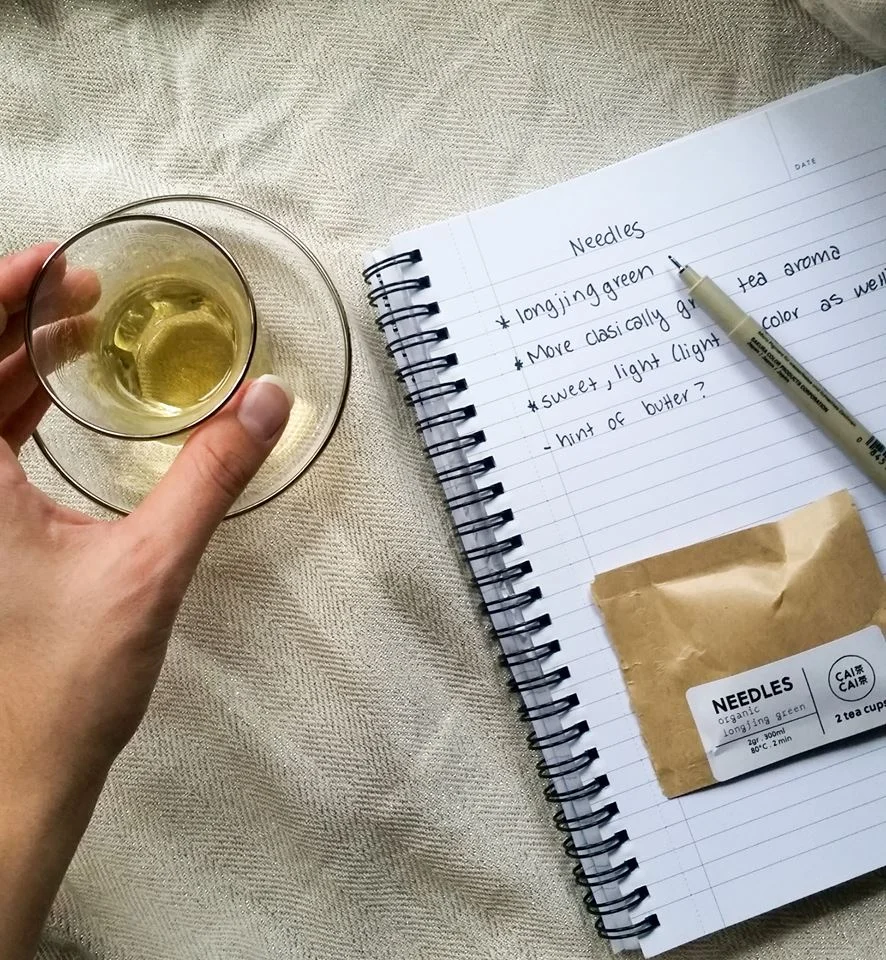 DATE
Needles
* longjing green
* More clasically gr tea aroma
* sweet, light (light color as well
- hint of butter?
SAKURA COLOR PRODUCTS CORPORATION
NEEDLES
organic
longjing green
2gr . 300ml
80°C . 2 min
CAI茶
CAI茶
2 tea cups